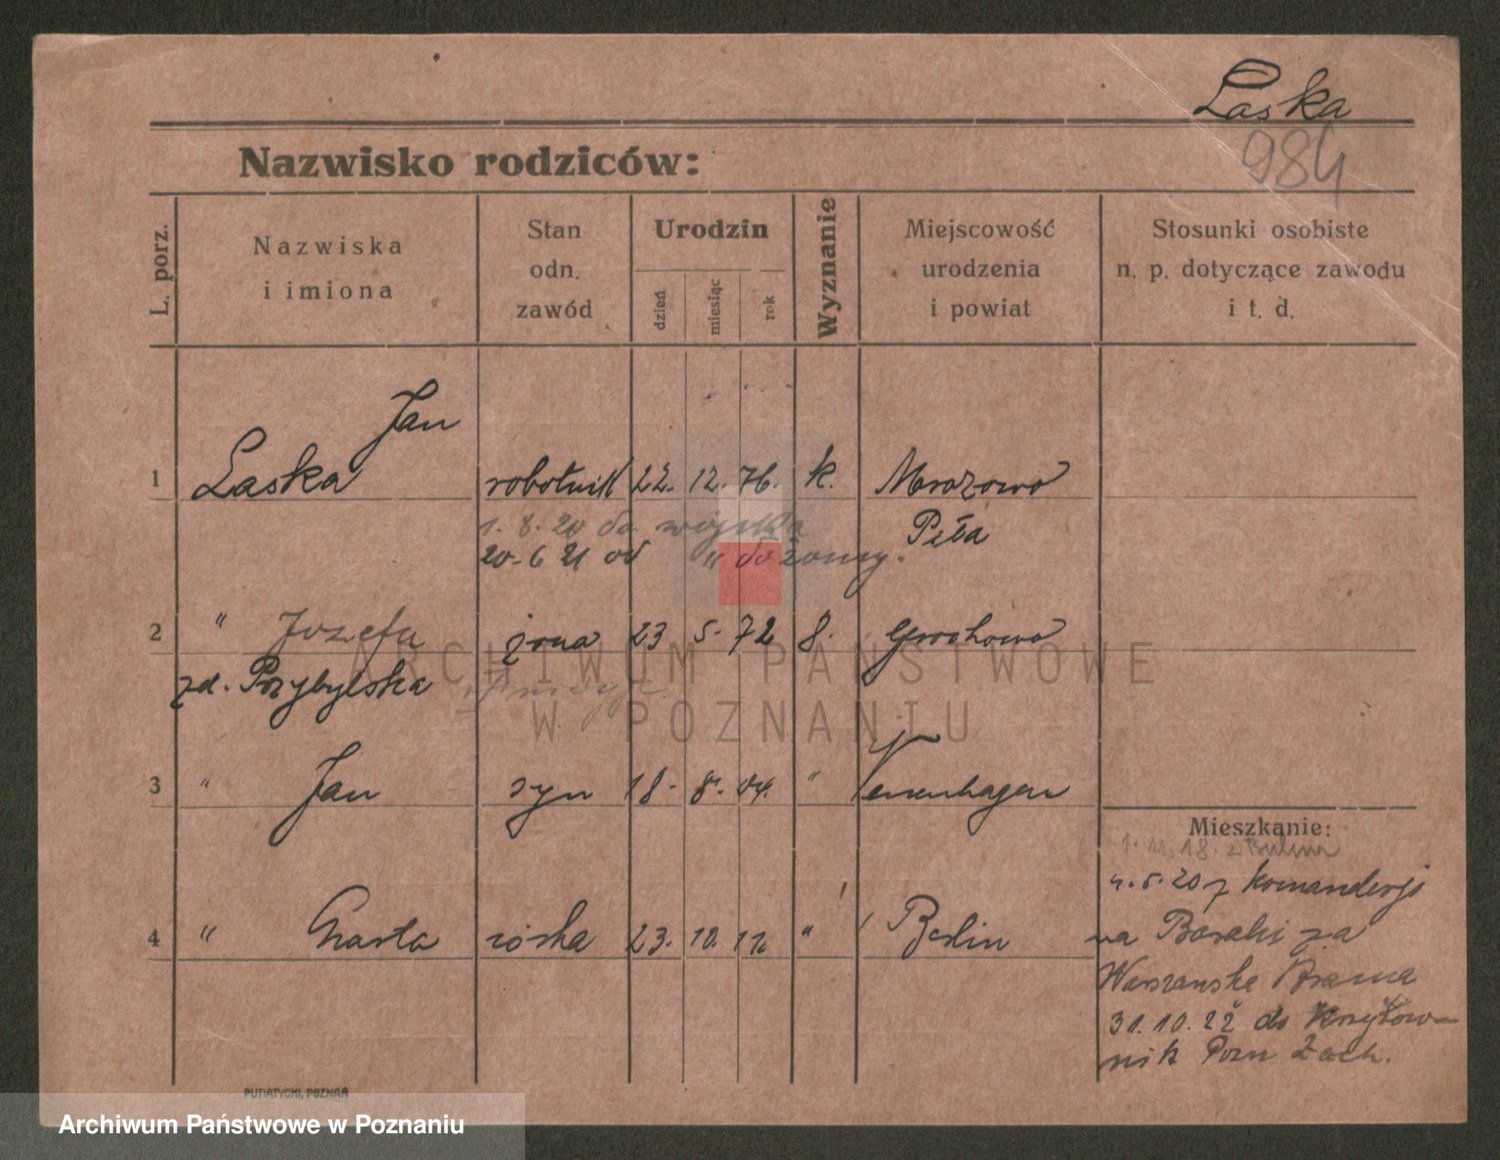 Laska
984
Nazwisko rodziców:
L. porz.
Nazwiska
i imiona
Stan
odn.
zawód
Urodzin
dzień
miesiąc
rok
Wyznanie
Miejscowość
urodzenia
i powiat
Stosunki osobiste
n. p. dotyczące zawodu
i t. d.
Jan
1 Laska robotnik 22. 12. 76. k. Mrozowo
1. 8. 20 do wojska Piła
20-6 21 od " do żony.
2 " Józefa żona 23 5- 72 Grochowo
zd. Przybylska
3 " Jan syn 18- 8. 04. "
4 " córka 23. 10. 11 " Berlin
Mieszkanie:
1. 11. 18. z
4. 5. 20 z Komanderji
na Baraki za
Warszawska Brama
31. 10. 22 do Krzyżow-
nik Pozn Zach.
PUTIATYCKI, POZNAŃ
ARCHIWUM PAŃSTWOWE
W POZNANIU
Archiwum Państwowe w Poznaniu